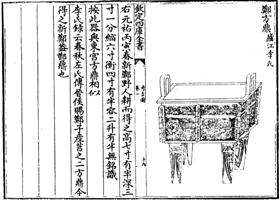 鄭方鼎 廬江李氏
欽定四庫全書
考古圖
卷一
右元祐丙寅春新鄭野人耕而得之高七寸有半深三
寸一分縮六寸衡四寸有半容二升有半無銘識
按此器與東宮方鼎相似
李氏錄云春秋左氏傳晉侯賜鄭子產莒之二方鼎今
得之新鄭蓋鄭鼎也